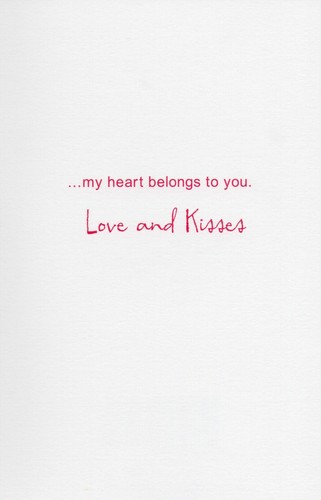 ...my heart belongs to you.
Love and Kisses